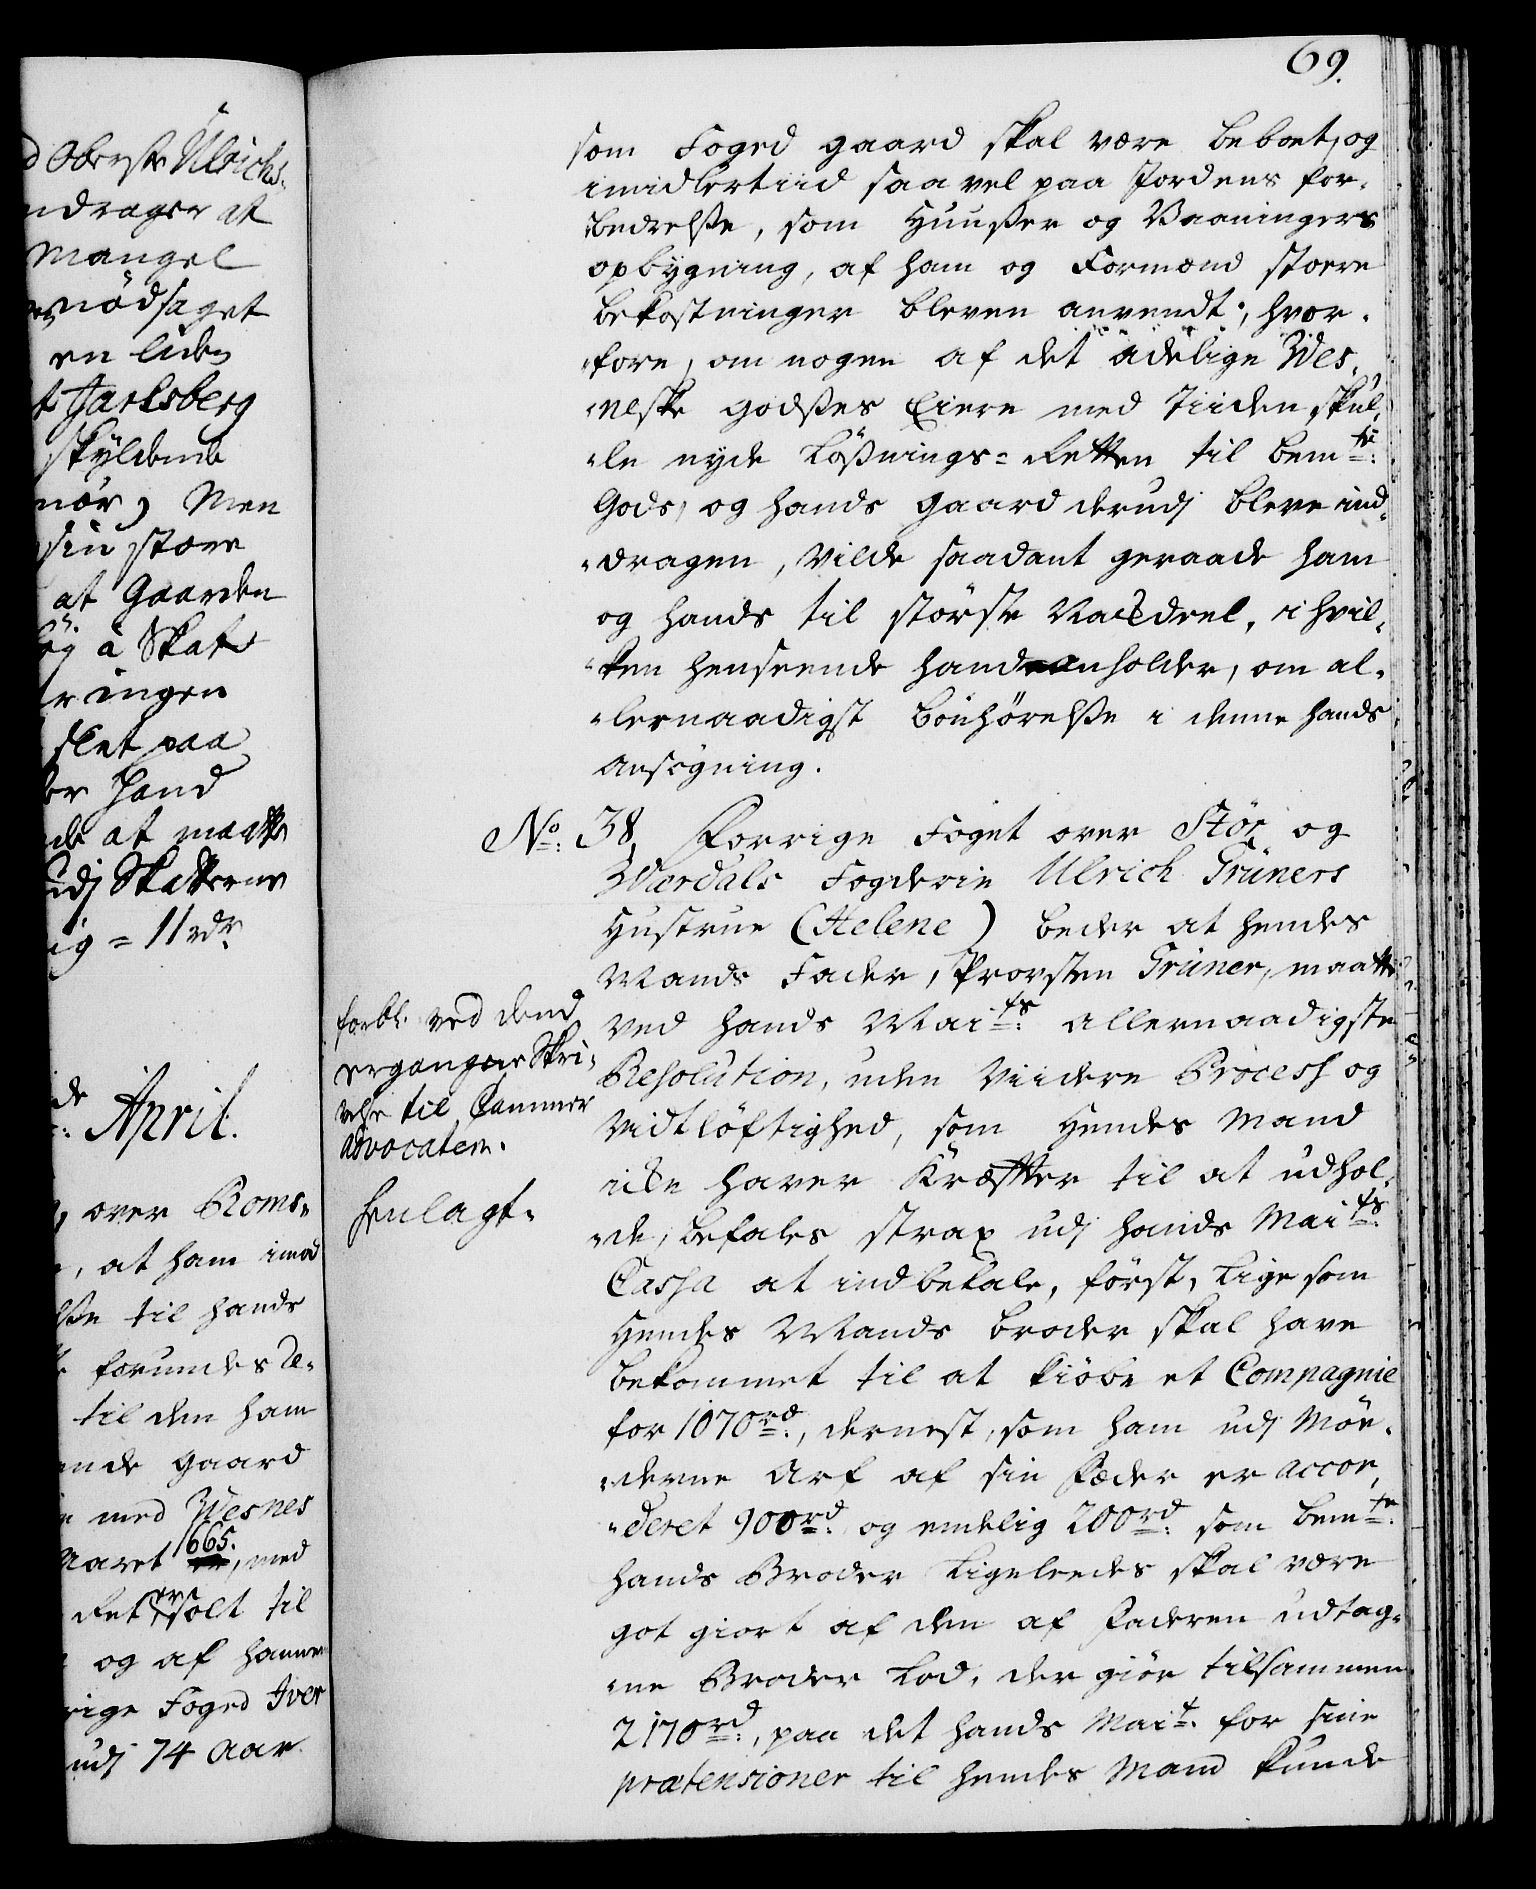 d Oberste Ulrichs-
ndrager at
Mangel
nödsaget
en liden
t Jarlsberg
skyldende
nör, Men
sin store
at Gaarden
øg à Skat
r ingen
slet paa
er hand
nde at maatte
udj Skatterne
ig = 11 rdr
de
April.
, over Roms-
, at ham imod
lse til hands
forundes De-
til den ham
ende gaard
n med Wesnes
Aaret 1665. , med
Ret er solt til
og af hannem
rige Foged Iver
udj 74 Aar.
69.
som Foged gaard skal være beboet, og
imidlertiid saa vel paa Jordens for-
bedrelse, som Huuser og Vaaningers
opbygning, af ham og Formænd stoere
bekostninger bleven anvendt, hvor-
fore, om nogen af det adelige Wes-
neske godses Eiere med Tiiden skul-
le nyde Løsnings-Retten til bemte:
Gods, og hands gaard derudj bleve ind-
dragen, vilde saadant geraade ham
og hands til største Nachdeel, i hvil-
ken henseende hand anholder, om al-
lernaadigst bönhørelse i denne hands
ansøgning.
No: 38, Forrige Foget over Stör og
Wærdals Fogderie Ulrich Grüners
Hustrue (Helene) beder at hendes
Mands Fader, Provsten Grüner, maatte
ved hands Maits: allernaadigste
Resolution, uden viidere Process og
Vidtløftighed, som Hendes Mand
icke haver Kræfter til at udhol-
de, befales strax udj hands Maits:
Cassa at indbetale, först, Lige som
Hendes Mands broder skal have
bekommet til at kiöbe et Compagnie
for 1070 rd:, dernest, som ham udj Möe-
derne Arf af sin Fader er accor-
deret 900 rd: og endelig 200 rd: som bemte:
hands Broder Ligeleedes skal være
got giort af den af Faderen udtag-
ne Broder Lod, der giör tilsammen
2170 rd:, paa det hands Mait: for sine
prætensioner til hendes Mand kunde
forbl. ved dend
ergangne Skri-
velse til Cammer
Advocaten.
Henlagt.